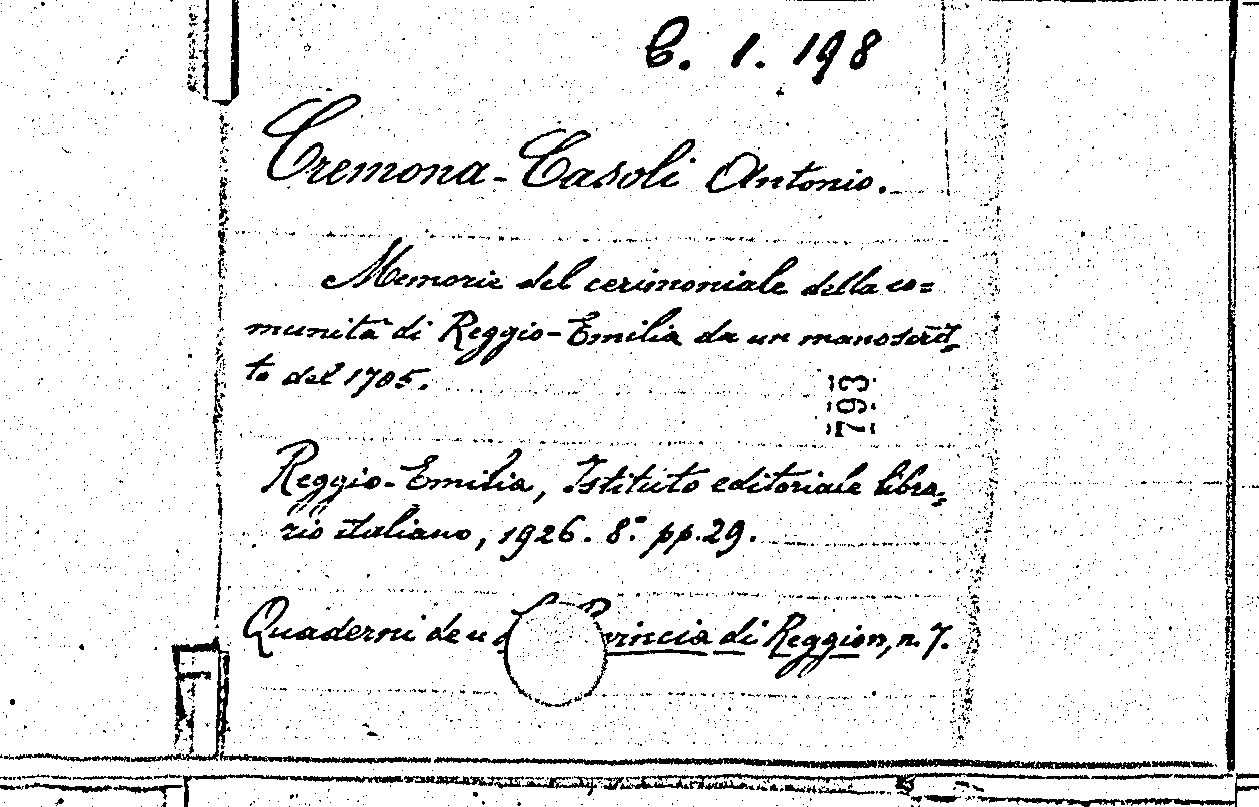 C. 1. 198
Cremona-Casoli Antonio.
Memorie del cerimoniale della co=
munità di Reggio-Emilia da un manoscrit=
to del 1705.
793
Reggio-Emilia, Istituto editoriale libra=
rio italiano, 1926. 8.° pp. 29.
Quaderni de „ vincia di Reggio„, n. 7.